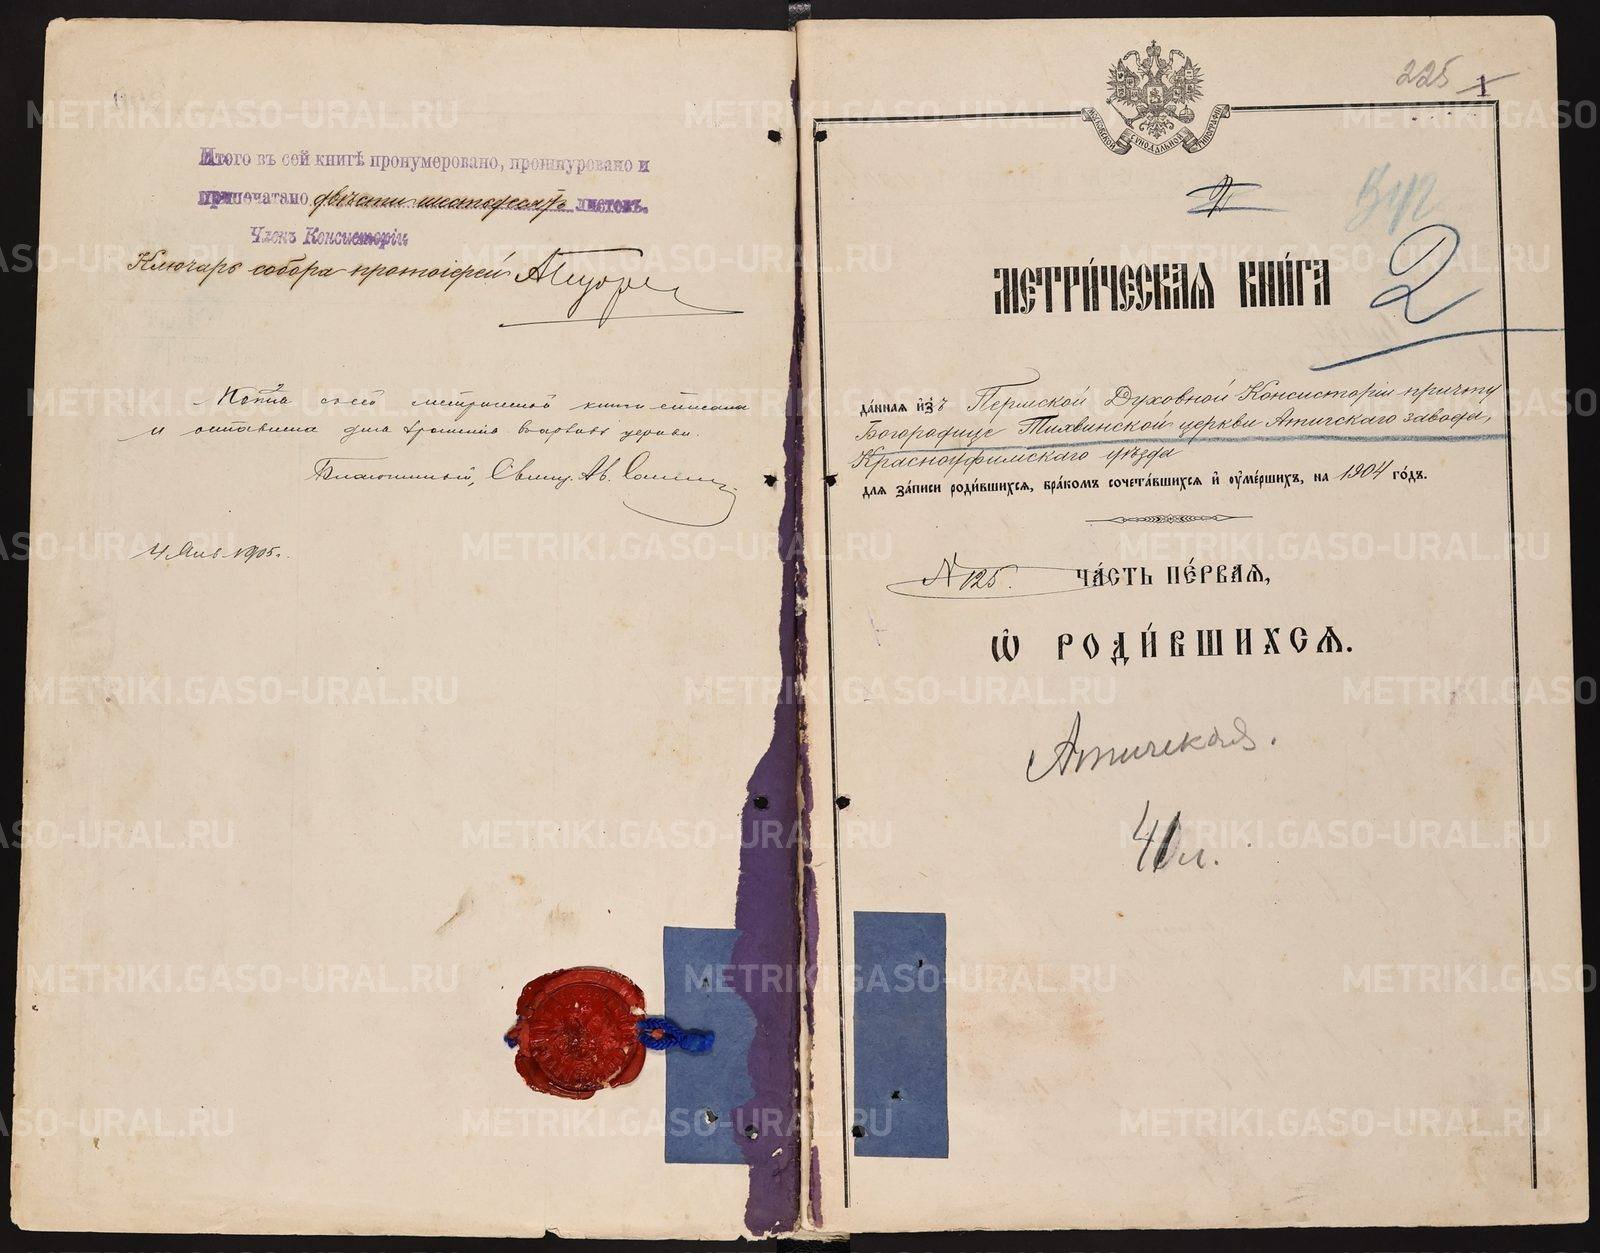 Итого въ сей книгѣ пронумеровано, прошнуровано и
припечатано двѣсти шестьдесятъ листовъ.
Членъ Консисторіи
Ключарь собора протоіерей
Копія съ сей метрической книги списана
и оставлена для храненія
Благочинный, Свящ. Ав.
4 Янв. 1905 г.
225 1
МОСКОВСКОЙ СѴНОДАЛЬНОЙ ТИПОГРАФІИ
2
МЕТРИ́ЧЕСКАѦ КНИ́ГА
да́ннаѧ и҆зъ Пермской Духовной Консисторіи причту
Богородице Тихвинской церкви Атигскаго завода,
Красноуфимскаго уѣзда
для за́писи роди́вшихсѧ, бра́комъ сочета́вшихсѧ и҆ оу҆ме́ршихъ, на 1904 го́дъ.
N 125. ЧА́СТЬ ПЕ́РВАѦ,
Ѡ҆ РОДИ́ВШИХСѦ.
Атигская.
л.
METRIKI.GASO-URAL.RU